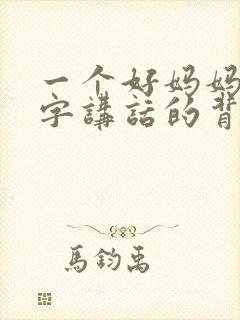 一个好妈妈
字講話的背
馬鈞禹